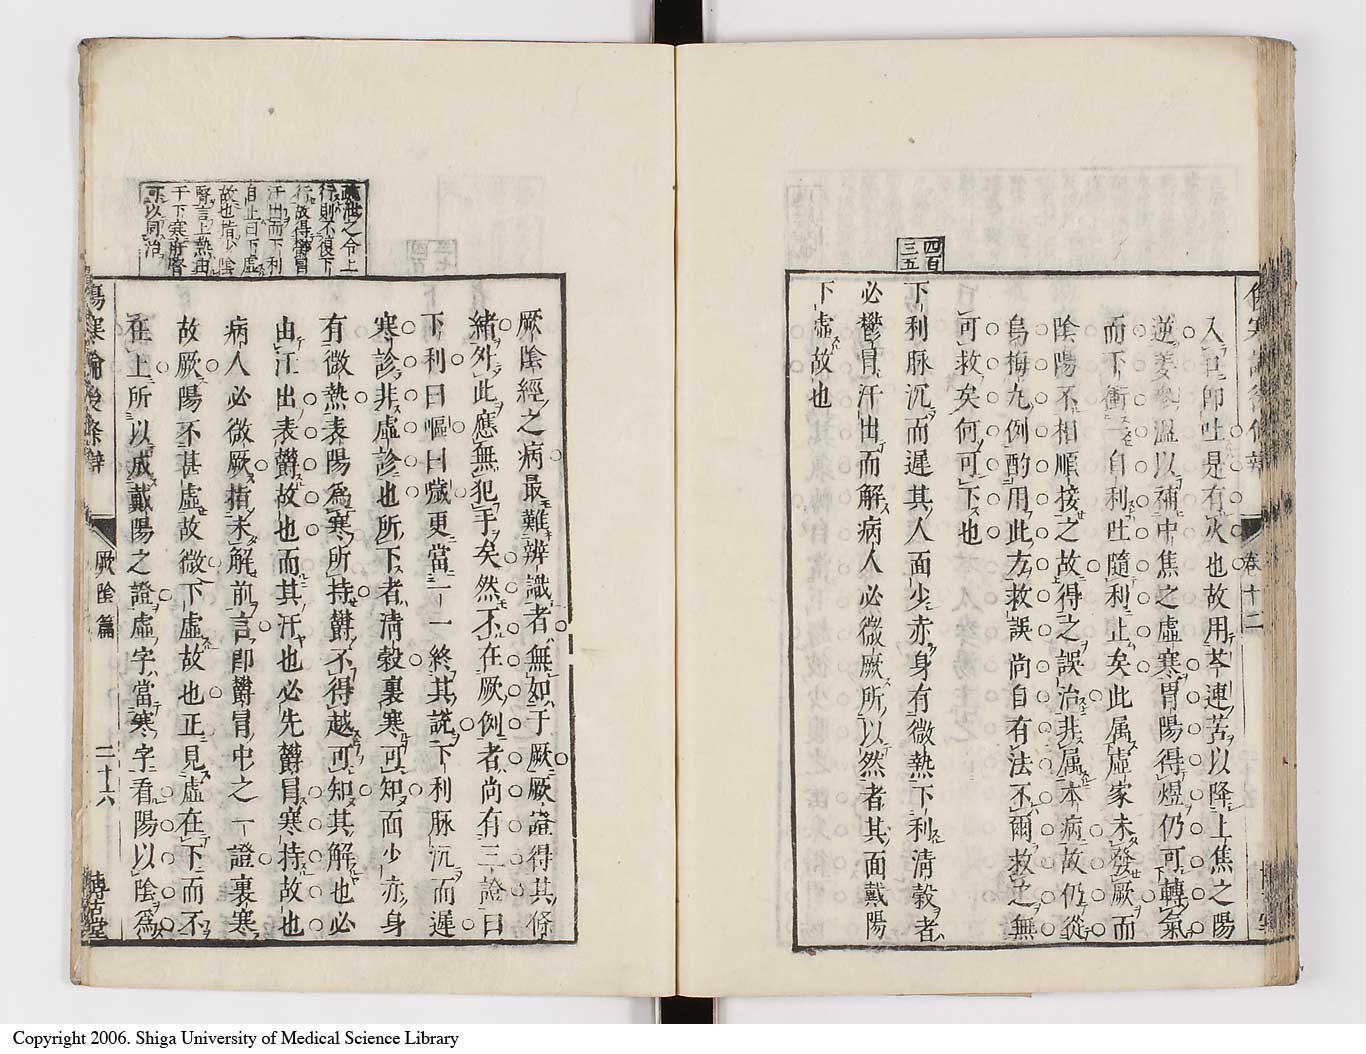 入口即吐是有火也故用芩連苦以降上焦之陽
逆姜參溫以補中焦之虛寒胃陽得煖仍可轉氣
而下衝一自利吐隨利止矣此属虛家未發厥而
陰陽不相順接之故得之誤治非属本病故仍從
烏梅丸例酌用此方救誤尚自有法不爾救之無
可救矣何可下也
四百
三五
下利脉沉而遲其人面少赤身有微熱下利清穀者
必鬱冒汗出而解病人必微厥所以然者其面戴陽
下虛故也
卷十二
厥陰經之病最難辨識者無如于厥厥證得其條
緒外此應無犯手矣然不在厥例者尚有三證曰
下利曰嘔曰噦更當一一終其說下利脉沉而遲
寒診非虛診也所下者清穀裏寒可知面少赤身
有微熱表陽爲寒所持欝不得越可知其解也必
由汗出表欝故也而其汗也必先欝冒寒持故也
病人必微厥指未解前言即欝冒中之一證裏寒
故厥陽不甚虛故微下虛故也正見虛在下而不
在上所以成戴陽之證虛字當寒字看陽以陰爲
疏泄之令上
行則不復下
行故得欝冒
汗出而下利
自止曰下虛
故也指少陰
腎言上熱由
于下寒肝腎
可以同治
傷寒論後條辨
厥陰篇
二十六
博古堂
Copyright 2006. Shiga University of Medical Science Library